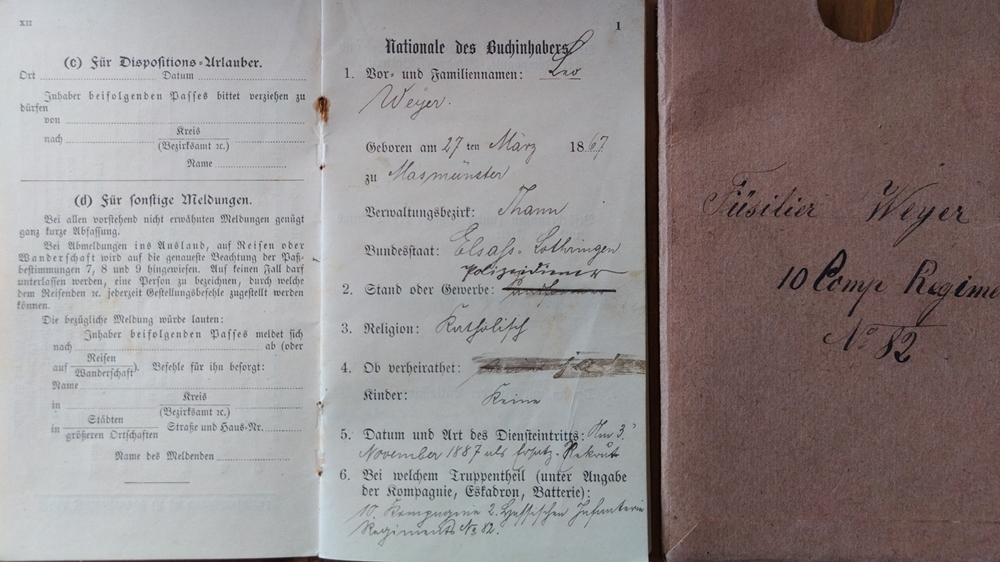 XII
(c) Für Dispositions-Urlauber.
Ort Datum
Inhaber beifolgenden Passes bittet verziehen zu
dürfen
von
nach Kreis
(Bezirksamt ꝛc.)
Name
(d) Für sonstige Meldungen.
Bei allen vorstehend nicht erwähnten Meldungen genügt
ganz kurze Abfassung.
Bei Abmeldungen ins Ausland, auf Reisen oder
Wanderschaft wird auf die genaueste Beachtung der Paß-
bestimmungen 7, 8 und 9 hingewiesen. Auf keinen Fall darf
unterlassen werden, eine Person zu bezeichnen, durch welche
dem Reisenden ꝛc. jederzeit Gestellungsbefehle zugestellt werden
können.
Die bezügliche Meldung würde lauten:
Inhaber beifolgenden Passes meldet sich
nach ab (oder
auf Reisen
Wanderschaft). Befehle für ihn besorgt:
Name
in Kreis
(Bezirksamt ꝛc.)
in Städten
größeren Ortschaften Straße und Haus-Nr.
Name des Meldenden
1
Nationale des Buchinhabers
1. Vor- und Familiennamen: Leo
Weyer.
Geboren am 27 ten März 1867
zu Masmünster
Verwaltungsbezirk: Thann
Bundesstaat: Elsass-Lothringen
Polizeidiener
2. Stand oder Gewerbe:
3. Religion: Katholisch
4. Ob verheirathet:
Kinder: Keine
5. Datum und Art des Diensteintritts: Am 3.
November 1887 als Ersatz-Rekrut
6. Bei welchem Truppentheil (unter Angabe
der Kompagnie, Eskadron, Batterie):
10. Kompagnie 2. Hessischen Infanterie
Regiments No 82.
Füsilier Weyer
10 Comp Regime
No 82